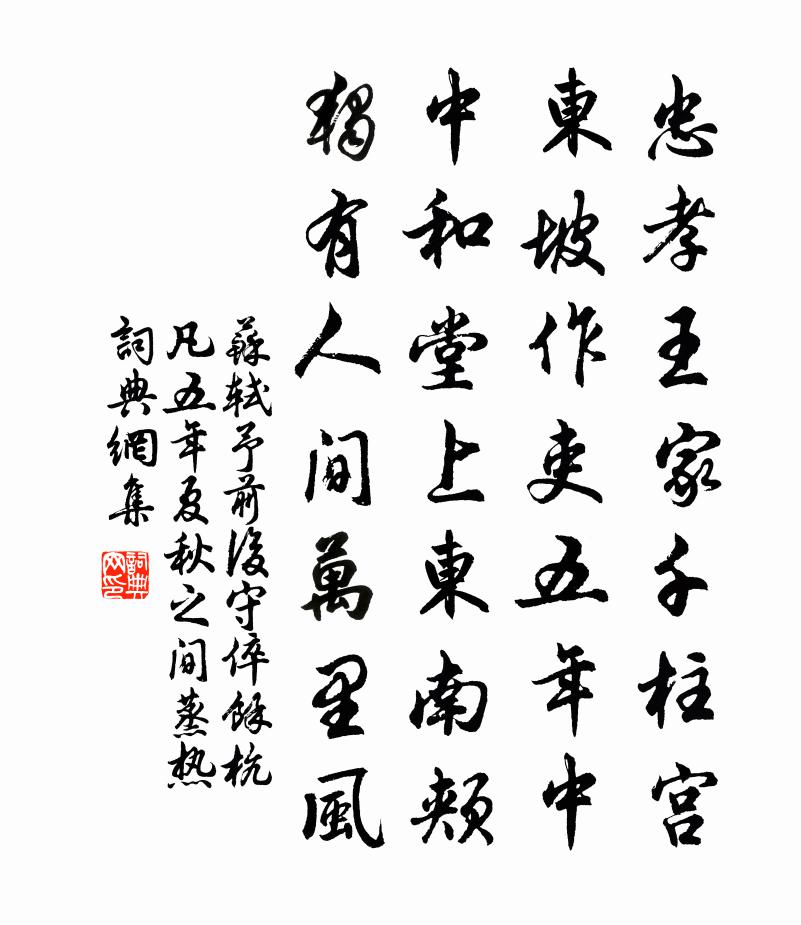 忠孝王家千柱宮
東坡作吏五年中
中和堂上東南頰
獨有人間萬里風
蘇軾予前後守倅餘杭
凡五年夏秋之间蒸热
詞典網集
詞典网印